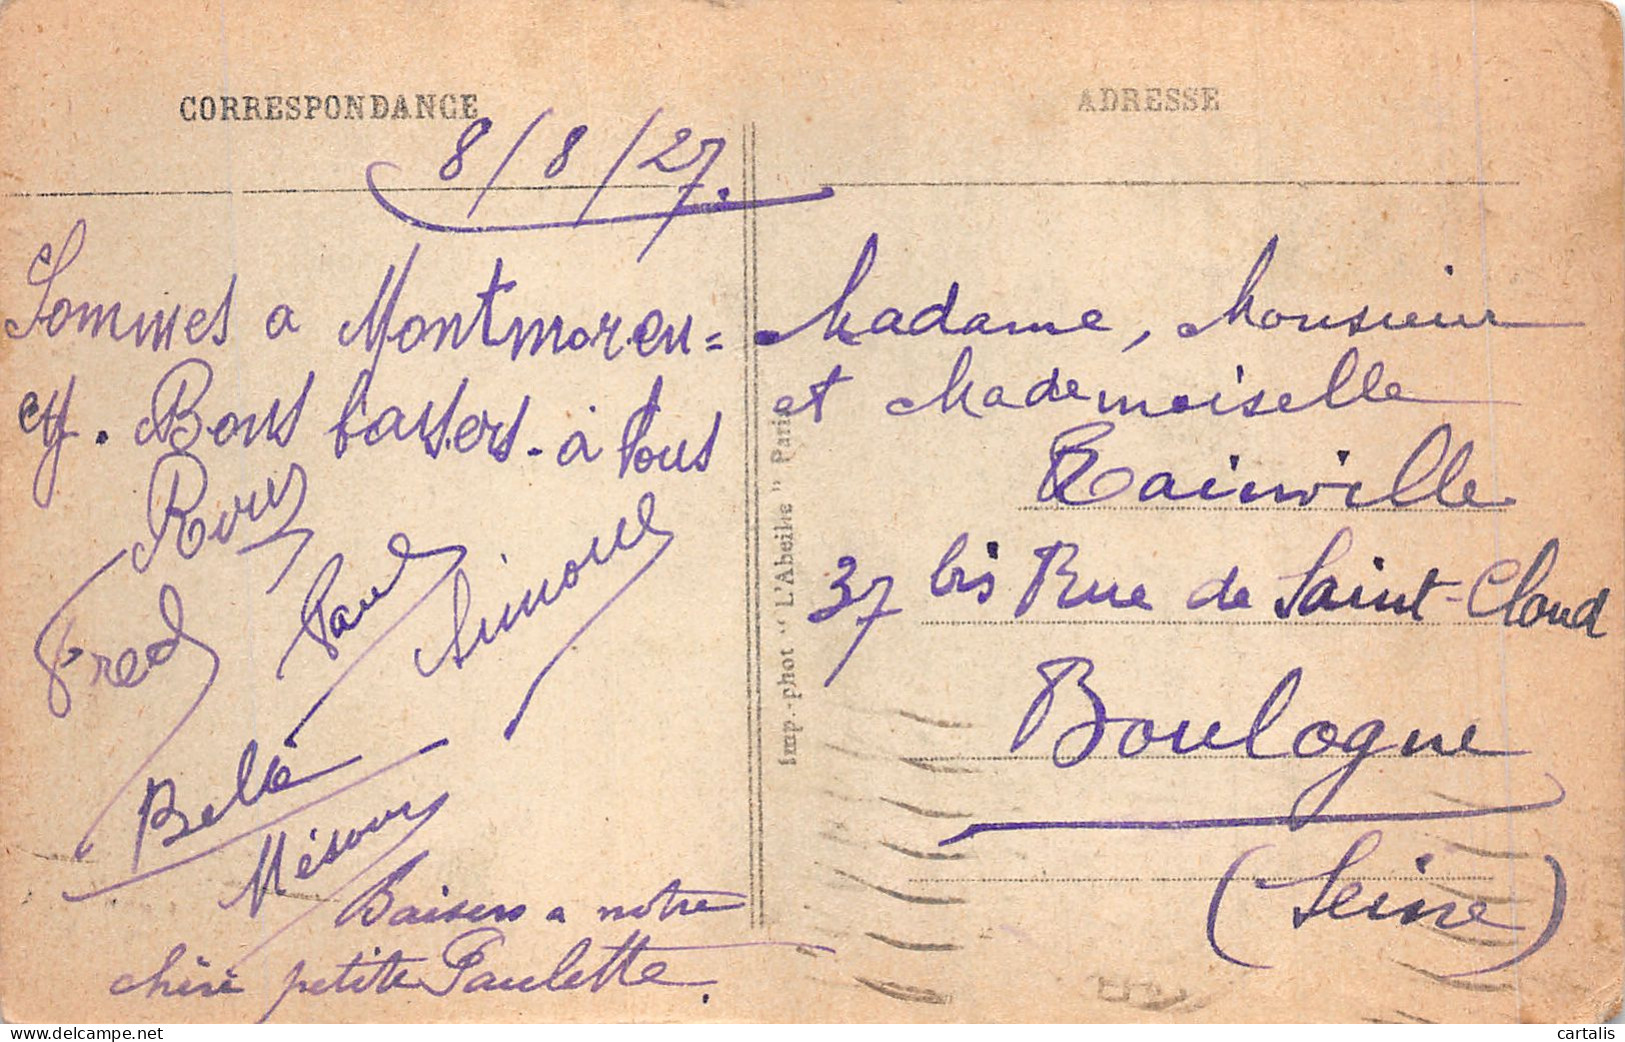 CORRESPONDANCE
8/8/27.
Sommes a Montmoren=
cy. Bons baisers - à tous
Fred
Paul
Simone
Bebé
Baisers a notre
chère petite Paulette.
Imp.-phot "L'Abeille" Paris
ADRESSE
Madame, Monsieur
et Mademoiselle
Rainville
37 bis Rue de Saint-Cloud
Boulogne
(Seine)
delcampe.net
cartalis